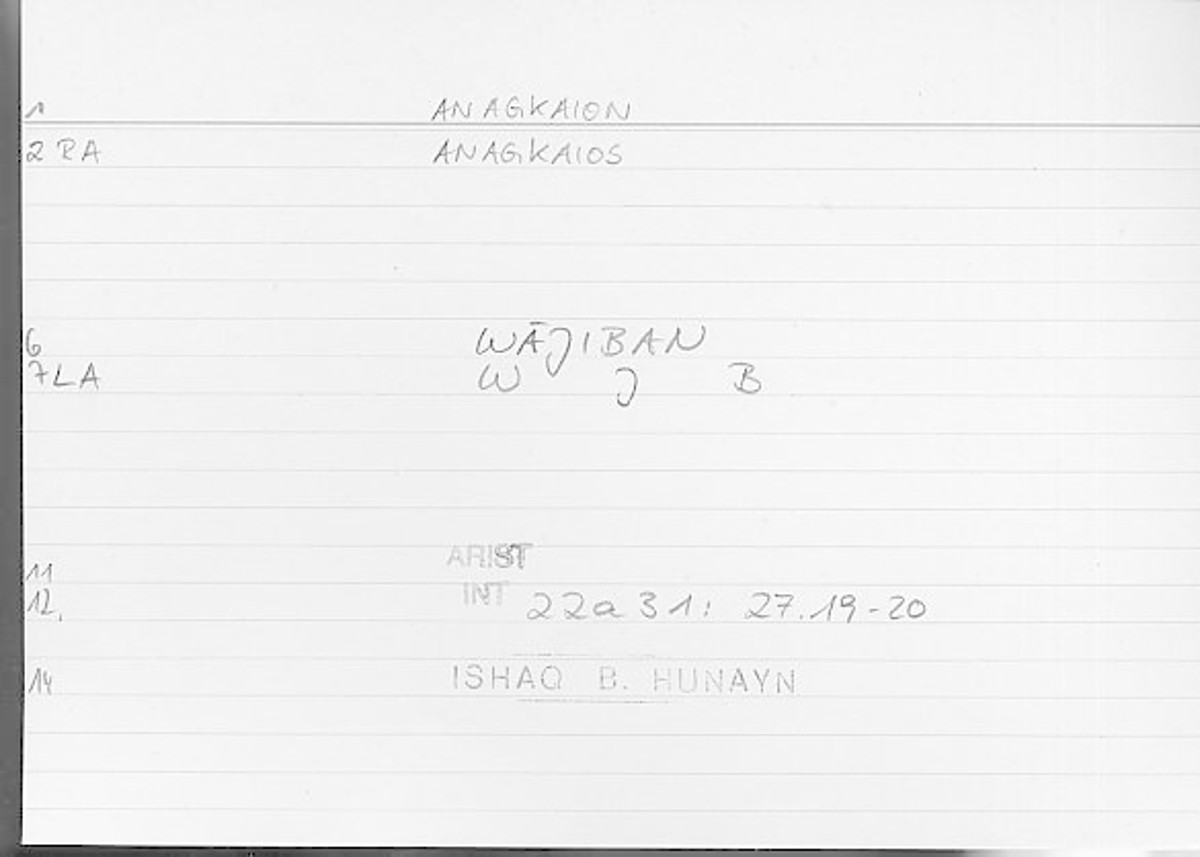 1 ANAGKAION
2 RA ANAGKAIOS
6 WĀJIBAN
7 LA W J B
11 ARIST
12. INT 22a31: 27.19-20
14 ISHAQ B. HUNAYN